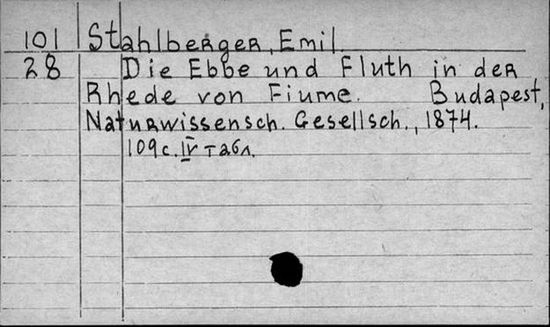 101 Stahlberger, Emil.
28 Die Ebbe und Fluth in der
Rhede von Fiume. Budapest,
Naturwissensch. Gesellsch., 1874.
109с. IV табл.